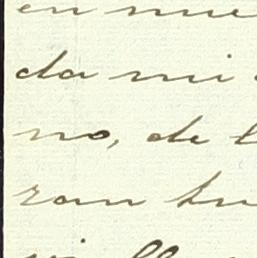 en nue
da mi
no, de l
ran hu